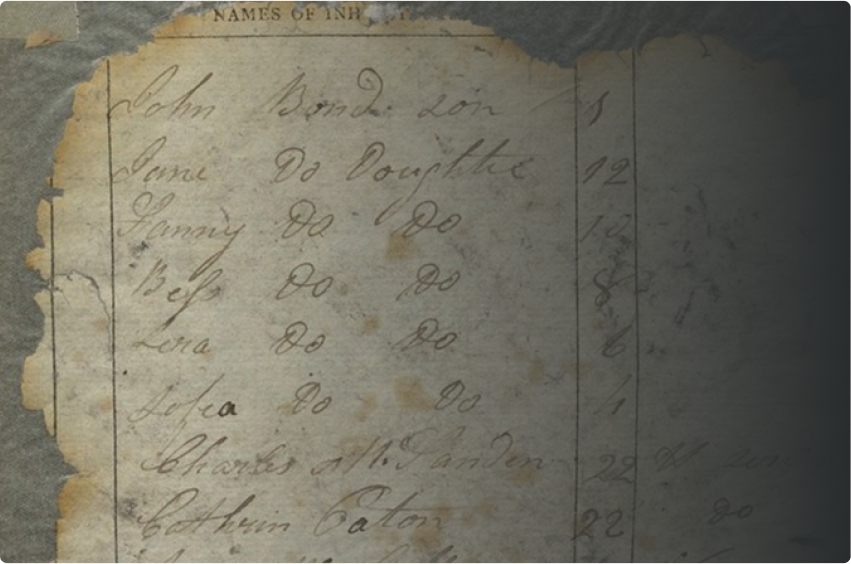 NAMES OF INH
John Bond son
Jane Do Doughter 12
Fanny Do Do
Bess Do Do 8
Do Do 6
Sofia Do Do 4
Charles 22
Cathrin Eaton 22 do